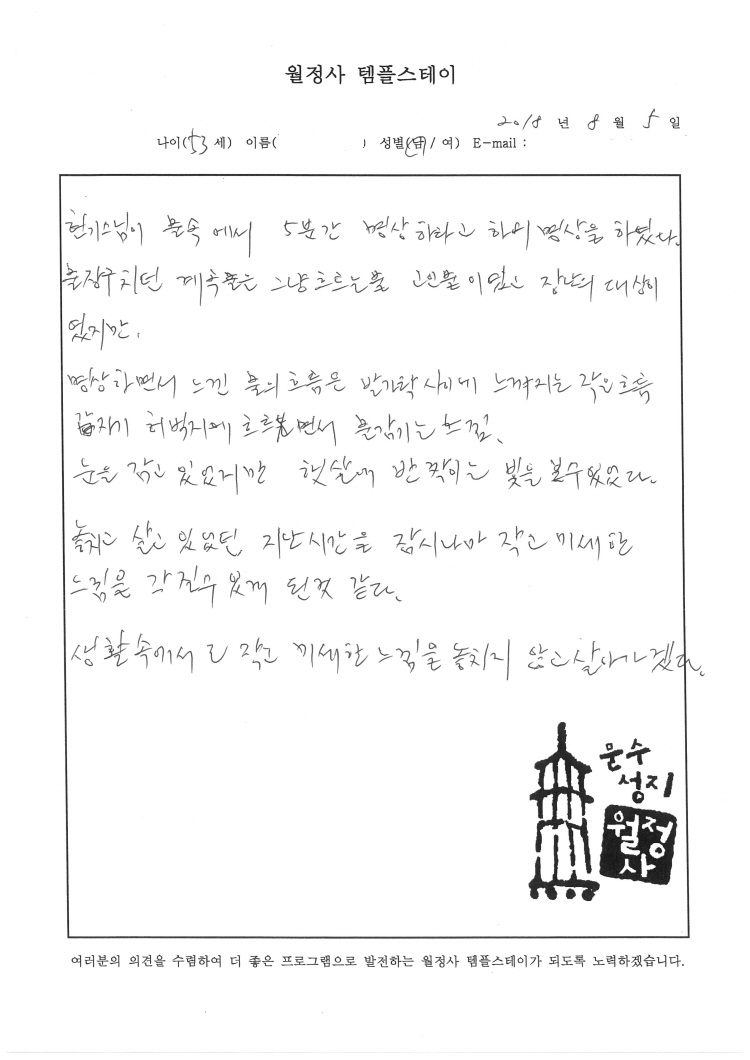 월정사 템플스테이
2018 년 8 월 5 일
나이(53 세) 이름( ) 성별(남/여) E-mail :
현기스님이 물속에서 5분간 명상하라고 하여 명상을 하였다.
물장구치던 계속물은 그냥 흐르는물 고인물이였고 장난의 대상이
였지만.
명상하면서 느낀 물의 흐름은 발가락 사이에 느껴지는 작은흐름
갑자기 허벅지에 흐르면서 문감기는 느낌.
눈을 감고 있었지만 햇살에 반짝이는 빛을 볼수있었다.
놓치고 살고 있었던 지난시간을 잠시나마 작고 미세한
느낌을 가질수 있게 된것 같다.
생활속에서도 작고 미세한 느낌을 놓치지 않고 살아가겠다.
문수
성지
월정
사
여러분의 의견을 수렴하여 더 좋은 프로그램으로 발전하는 월정사 템플스테이가 되도록 노력하겠습니다.